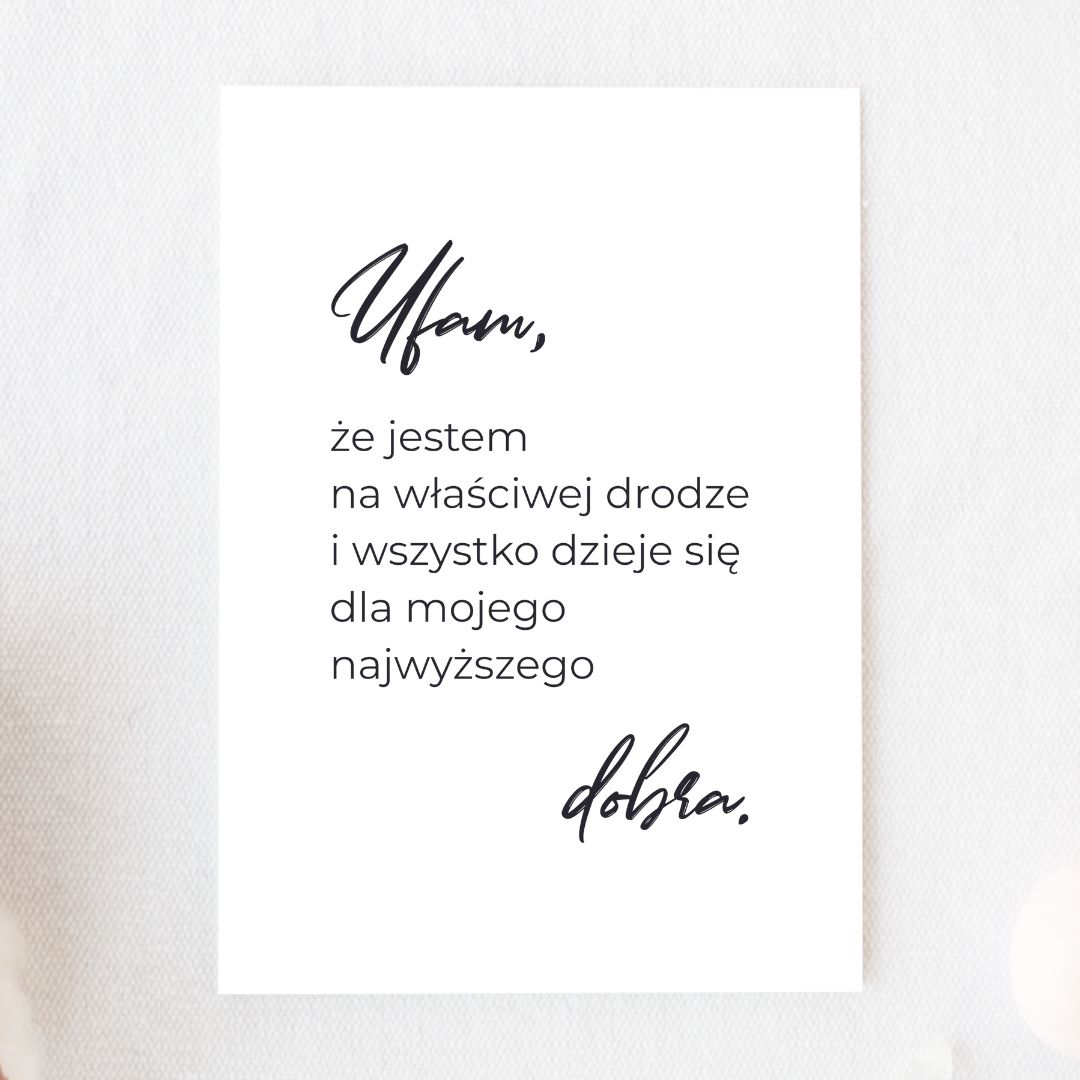 Ufam,
że jestem
na właściwej drodze
i wszystko dzieje się
dla mojego
najwyższego
dobra.